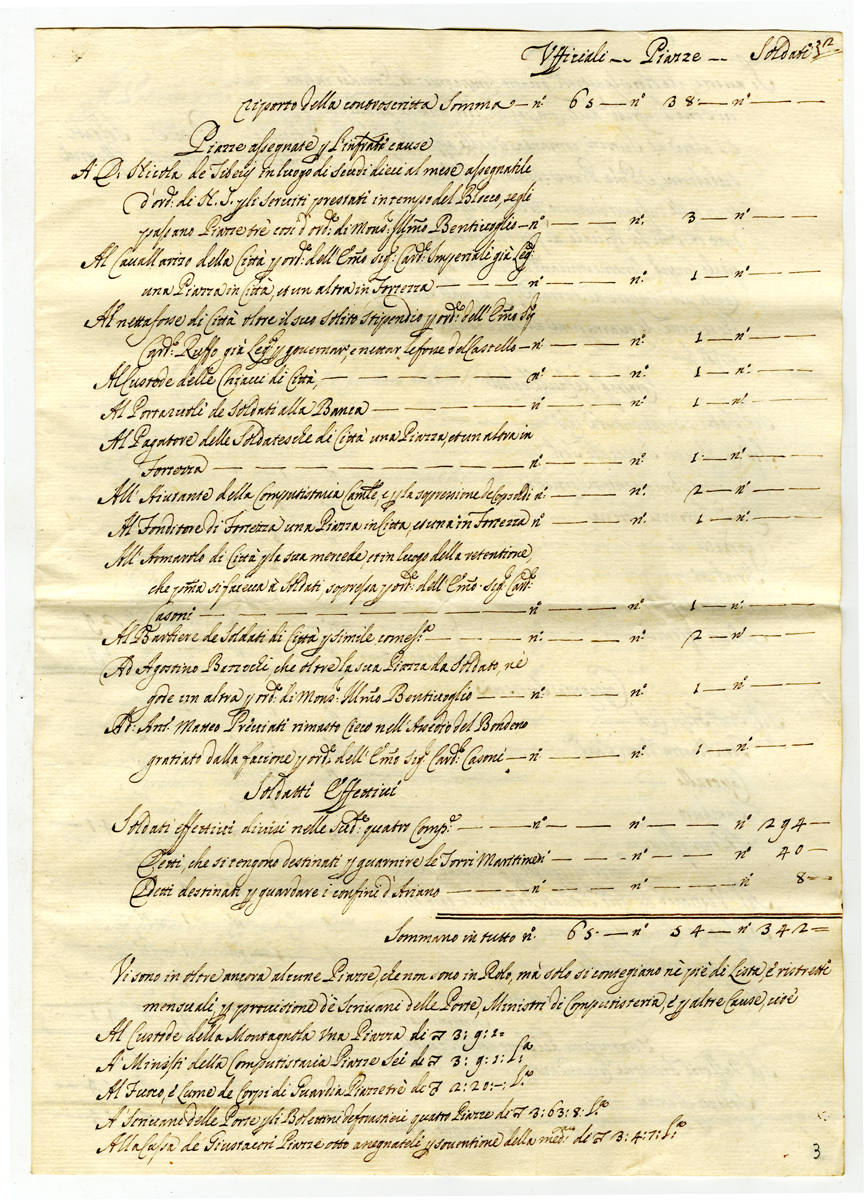 Vfficiali -- Piazze -- Soldati 32
riporto della controscritta Somma — n.° 65 — n.° 38 — n.° — —
Piazze assegnate p l'infratti cause
A' D. Nicola de in luogo di Scudi dieci al mese assegnatile
d'ord.e di N. S. p gli Servitij prestati in tempo del Blocco, se gli
passano Piazze trè così d'ord.e di Mons.r Illmo Bentivoglio — n.° — — n.° 3 — n.° — —
Al Cavallarizo della Città p ord.e dell'Emo Sig.r Card. Imperiali già Leg.to
una Piazza in Città, et un altra in Fortezza — — — n.° — — n.° 1 — n.° — —
Al nettafosse di Città oltre il suo solito stipendio p ord.e dell'Emo Sig.r
Card. Ruffo già Leg.to p governar, e nettar le del Castello — n.° — — n.° 1 — n.° — —
Al Custode delle Chiavi di Città, — — — — n.° — — n.° 1 — n.° — —
Al de Soldati alla Banca — — — — n.° — — n.° 1 — n.° — —
Al Pagatore delle Soldatesche di Città una Piazza, et un altra in
Fortezza — — — — — — n.° — — n.° 1 — n.° — —
All'Aiutante della Computistaria Camle, e p la sopressione de n.° — — n.° 2 — n.° — —
Al Fonditore di Fortezza una Piazza in Città, et una in Fortezza n.° — — n.° 1 — n.° — —
All'Armarolo di Città p la sua mercede et in luogo della retentione
che pma si faceva à Soldati sopressa p ord.e dell'Emo Sig.r Card.
Casoni — — — — — — n.° — — n.° 1 — n.° — —
Al Barbiere de Soldati di Città p simile — — n.° — — n.° 2 — n.° — —
Ad Agostino che oltre la sua Piazza da Soldato, nè
gode un altra p ord.e di Mons.r Illmo Bentivoglio — — n.° — — n.° 1 — n.° — —
Ad Ant.o Matteo rimasto Cieco nell'Assedio del Bondeno
gratiato dalla fazione p ord.e dell'Emo Sig.r Card. Casoni — n.° — — n.° 1 — n.° — —
Soldatti Effettivi
Soldati effettivi divisi nelle Sud.e quatro Comp.e — — n.° — — n.° — — n.° 294 —
Detti, che si tengono destinati p guarnire le Torri Maritime n.° — — n.° — — n.° 40 —
Detti destinati p guardare i confini d'Ariano — — n.° — — n.° — — n.° 8 —
Sommano in tutto n.° 65 — n.° 54 — n.° 342 =
Vi sono in oltre ancora alcune Piazze, che non sono in Rolo, mà solo si contegiano nè piè di Lista, è ristretti
mensuali, p provisione dè Scrivani delle Porte, Ministri di Computisteria, è p altre Cause, cioè
Al Custode della Montagnola Una Piazza di 3 : 9 : 1 =
A' Ministri della Computistaria Piazze Sei de 3 : 9 : 1 : l'una
Al Fuoco, è Lume de Corpi di Guardia Piazze trè de 2 : 20 : – : l'una
A' Scrivani delle Porte p gli Bolettini de frastieri quatro Piazze de 3 : 63 : 8 : l'una
Alla Cassa de Giustacori Piazze otto assegnateli p soventione della med.ma de 3 : 4 : 7 : l'una
3